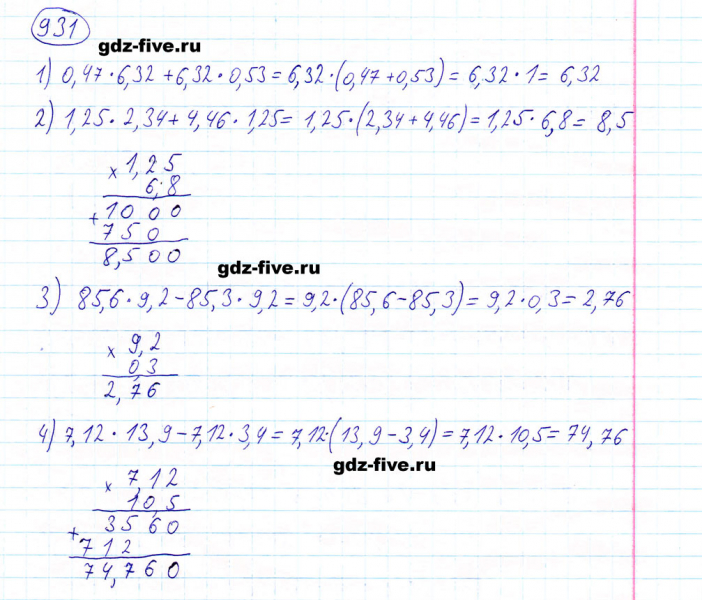 931
gdz-five.ru
1) 0,47·6,32+6,32·0,53=6,32·(0,47+0,53)=6,32·1=6,32
2) 1,25·2,34+4,46·1,25=1,25·(2,34+4,46)=1,25·6,8=8,5
× 1,25
6,8
+ 1000
750
8,500
gdz-five.ru
3) 85,6·9,2-85,3·9,2=9,2·(85,6-85,3)=9,2·0,3=2,76
× 9,2
0,3
2,76
4) 7,12·13,9-7,12·3,4=7,12·(13,9-3,4)=7,12·10,5=74,76
gdz-five.ru
× 7,12
10,5
+ 3560
712
74,760